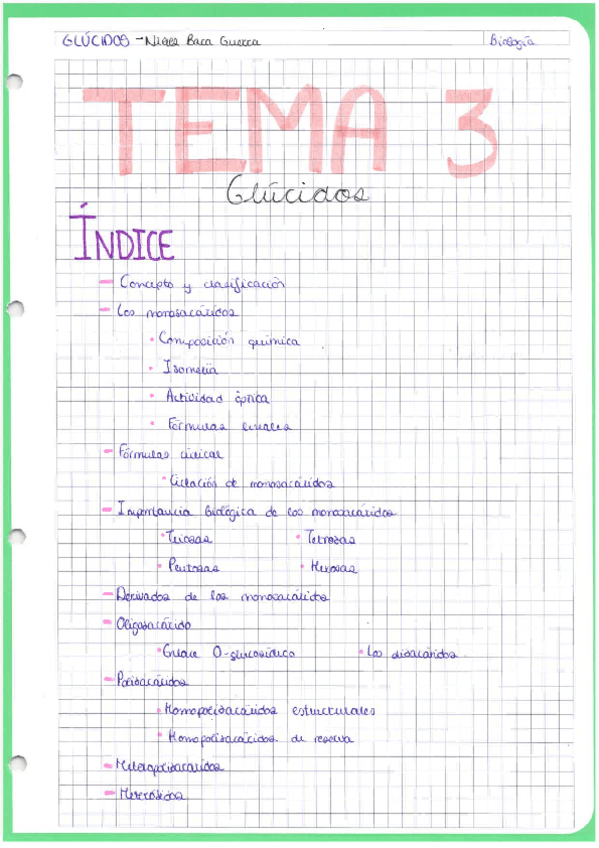 GLÚCIDOS - Nieves Baca Guerra Biología
TEMA 3
Glúcidos
ÍNDICE
- Concepto y clasificación
- Los monosacáridos
• Composición química
• Isomería
• Actividad óptica
• Fórmulas lineales
- Fórmulas cíclicas
• Ciclación de monosacáridos
- Importancia biológica de los monosacáridos
• Triosas • Tetrosas
• Pentosas • Hexosas
- Derivados de los monosacáridos
- Oligosacárido
• Enlace O-glucosídico • Los disacáridos
- Polisacáridos
• Homopolisacáridos estructurales
• Homopolisacáridos de reserva
- Heteropolisacáridos
- Heterósidos